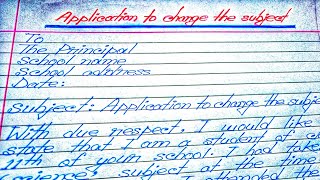 Application to change the subject
To
The Principal
School name
School address
Date:
Subject: Application to change the subje
With due respect, I would like
state that I am a student of cl
11th of your school. I had take
science" subject at the time
I attended the